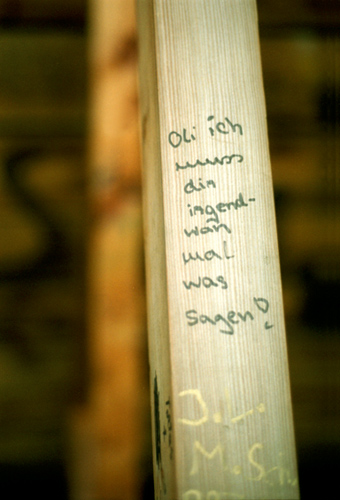 Oli ich
muss
dir
irgend-
wan
mal
was
sagen!
J.
M.S